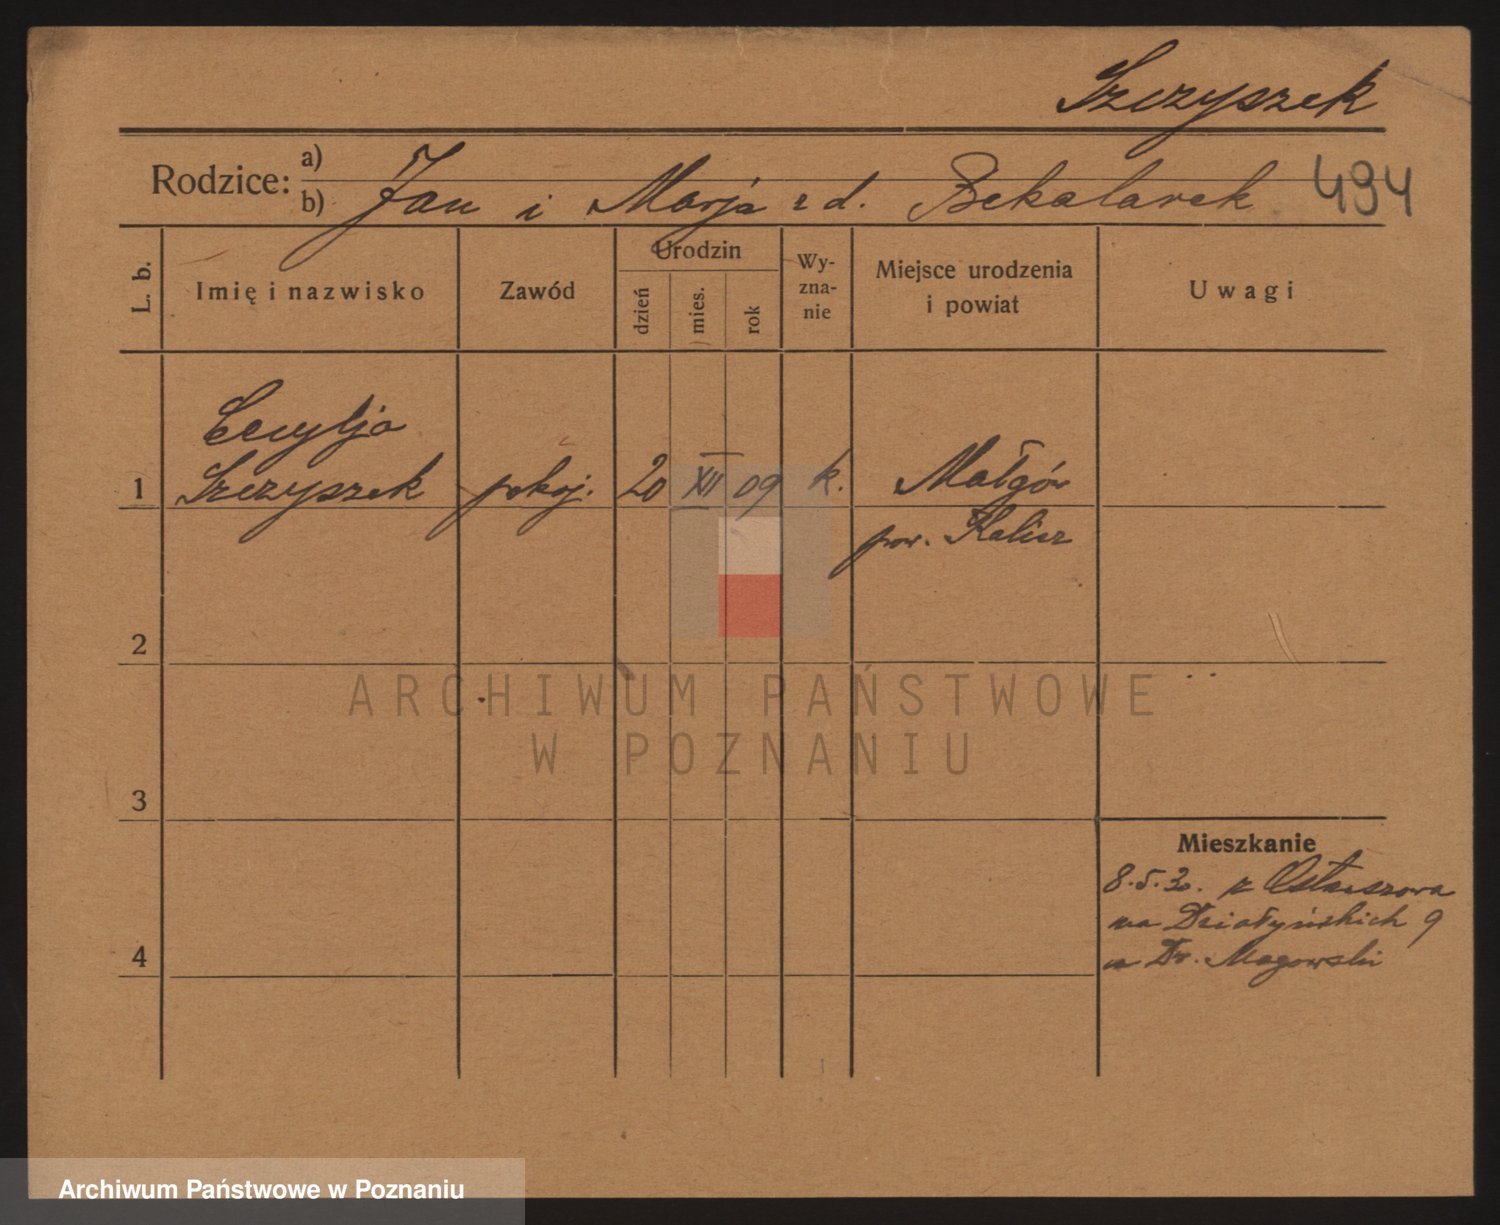 Szczyszek
Rodzice: a)
b) Jan i Marja z d. Bekalarek 494
L. b. Imię i nazwisko Zawód Urodzin dzień mies. rok Wy-zna-nie Miejsce urodzenia i powiat Uwagi
Cecylja
1 Szczyszek pokoj. 20 XII 09 k. Małgów
pow. Kalisz
2
ARCHIWUM PAŃSTWOWE
W POZNANIU
3
Mieszkanie
8.5.30. z Ostrzeszowa
na Działyńskich 9
u Dr. Magowski
4
Archiwum Państwowe w Poznaniu